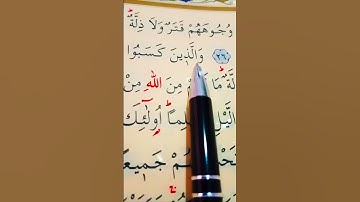 وُجُوهَهُمْ قَتَرٌ وَلَا ذِلَّةٌ
﴿٢٦﴾ وَالَّذ۪ينَ كَسَبُوا
لَّةٌ مَا مِنَ اللّٰهِ مِنْ
الَّيْلِ اُو۬لٰٓئِكَ
جَم۪يعًا